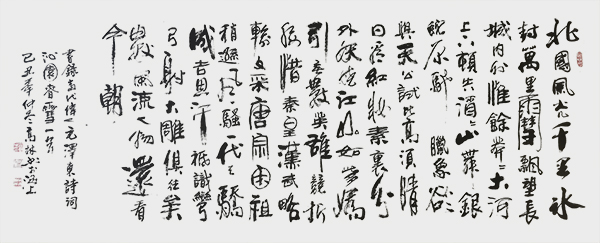 北國風光千里冰
封萬里雪飄望長
城内外惟餘莽莽大河
上下頓失滔滔山舞銀
蛇原馳臘象欲
與天公試比高須晴
日看紅裝素裹分
外妖嬈江山如此多嬌
引無數英雄競折
腰惜秦皇漢武略
輸文采唐宗宋祖
稍遜風騷一代天驕
成吉思汗祗識彎
弓射大雕俱往矣
數風流人物還看
今朝
書錄當代偉人毛澤東詩詞
沁園春雪一首
己丑年仲冬高書於滬上